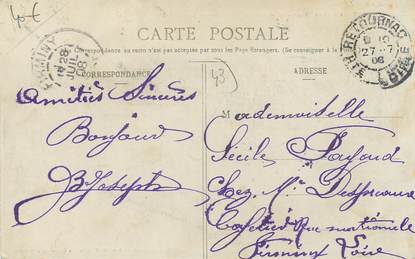 40€
CARTE POSTALE
La Correspondance au recto n'est pas acceptée par tous les Pays Étrangers. (Se renseigner à la
CORRESPONDANCE
ADRESSE
43
FIRMINY
28
JUIL
08
RETOURNAC
27-7
08
HTE LOIRE
Amitiés Sincères
Bonjour
B Joseph
Mademoiselle
Cécile
Chez Mr
Cafetier Rue
Firminy Loire